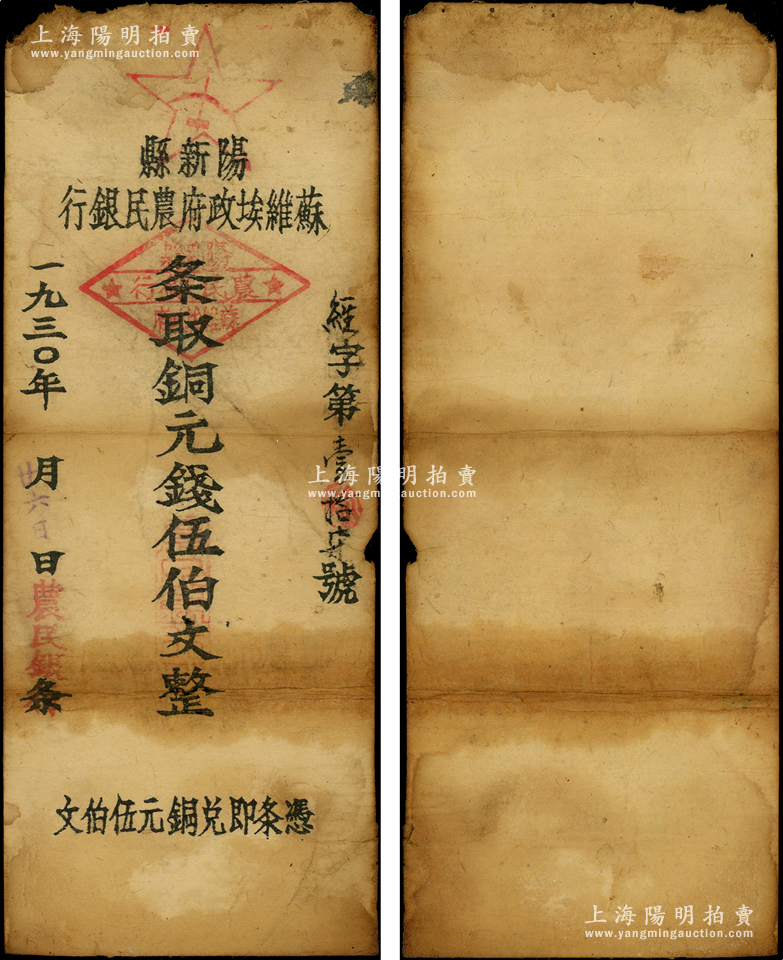 上海陽明拍賣
www.yangmingauction.com
陽新縣
蘇維埃政府農民銀行
條取銅元錢伍伯文整
經字第壹
拾
號
一九三〇年 月 日 条
廿六日
農民銀
憑条即兑銅元伍伯文
上海陽明拍賣
www.yangmingauction.com
上海陽明拍賣
www.yangmingauction.com